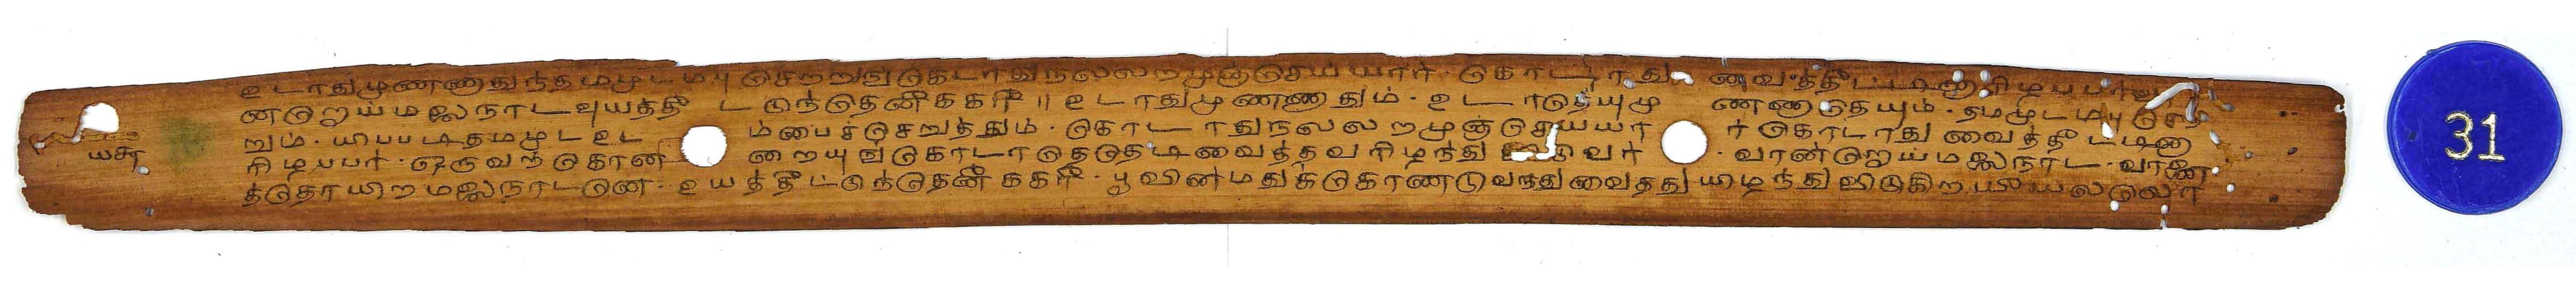 உடாதுமுண்ணாதுந்தமமுடமபு செறறுஙகெடாதுநலலறமுஞசெயயார. கொடாது வைத்தீட்டினாரிழபபர
னதொறுய்மலைநாடஉயத்தீ ட டுந்தெனீககரி ॥ உடாதுமுண்ணாதும். உடாதெயுமு ண்ணாதெயும். தமமுடமபுசெற
றும். யிபபடிதமமுடஉட ம்பைச்செறுத்தும். கொடாதுநலலறமுஞ்செயயார் கொடாது வைத்தீட்டினா
ரிழபபர். ஒருவற்கொன் றையுங்கொடாதெதெடிவைத்தவரிழந்து விடுவர் . வான்றொய்மலைநாட. வானை
த்தொயிறமலைநாடனெ. உயத்தீட்டுந்தெனீககரி. பூவினமதுக்கொணடுவந்துவைதது யிழந்துவிடுகிற பல
யசு
31